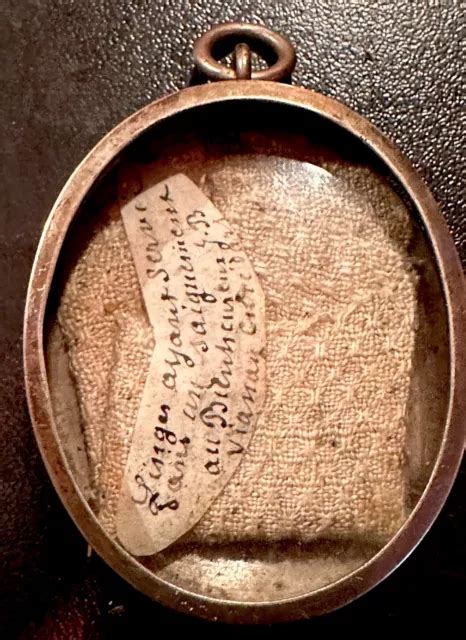 Linges ayant servi
dans un saignement
au Bienheureux J. B
Vianney Curé d